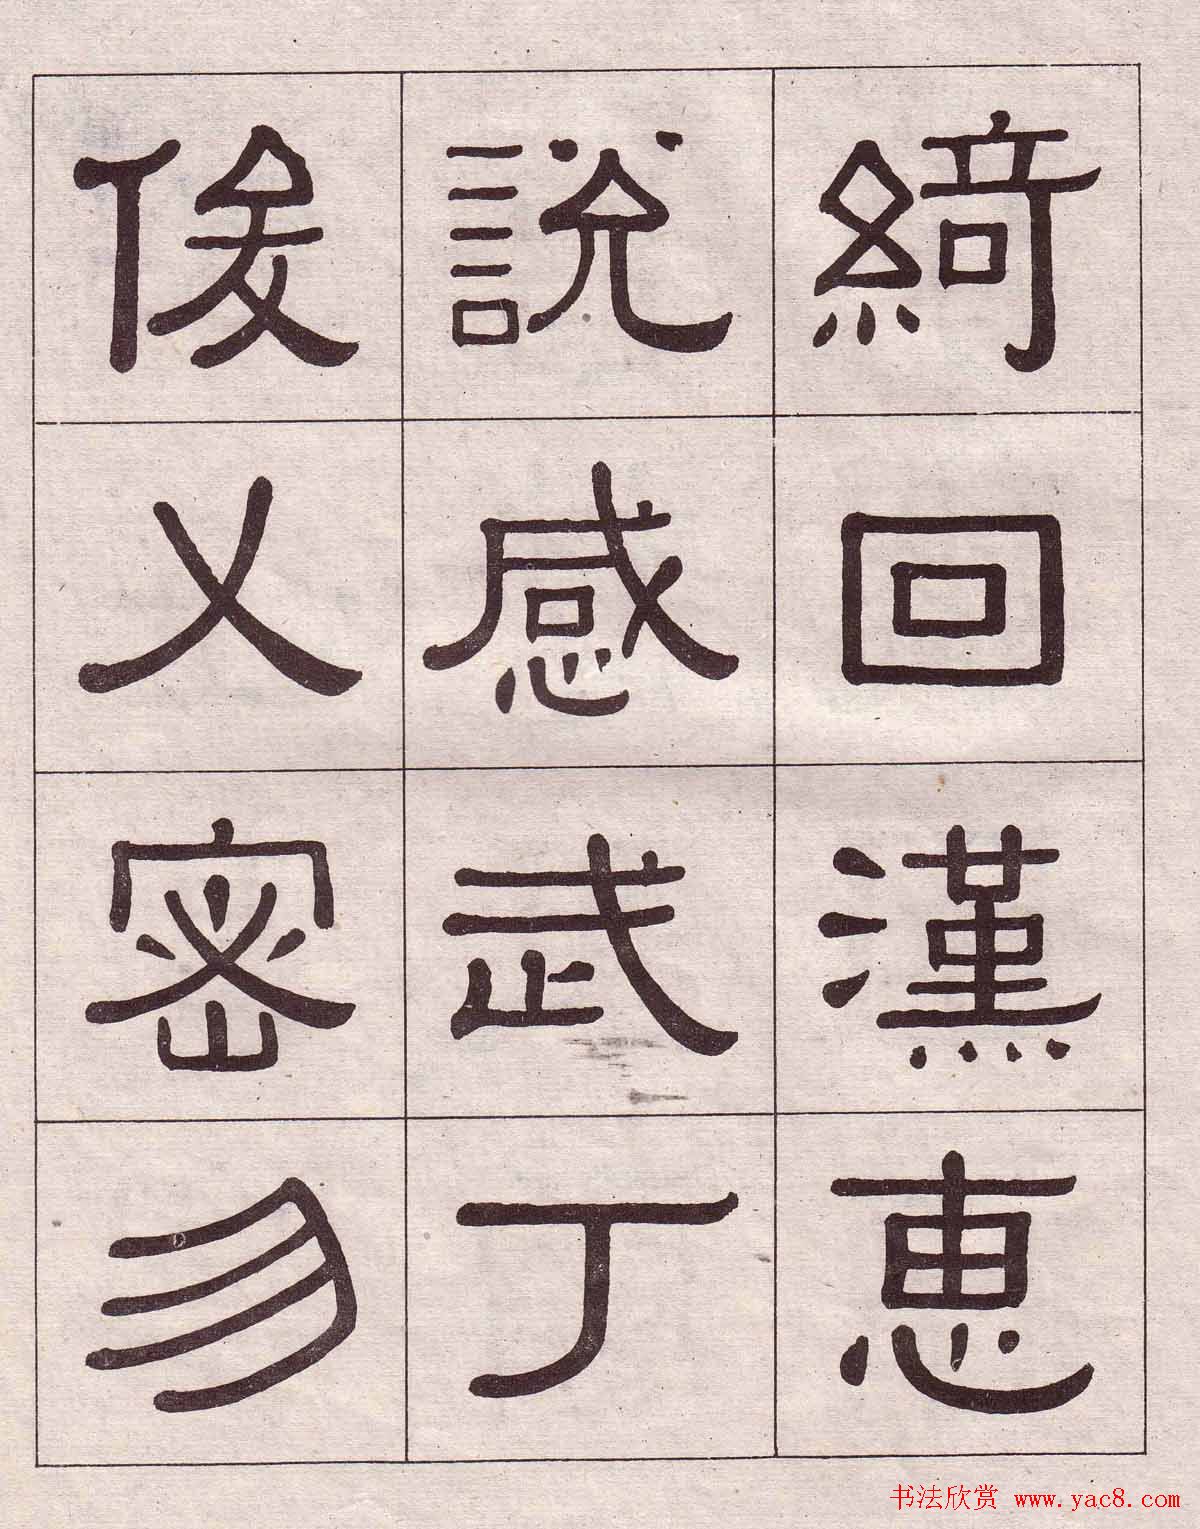 綺回漢惠
說感武丁
俊乂密勿
书法欣赏 www.yac8.com